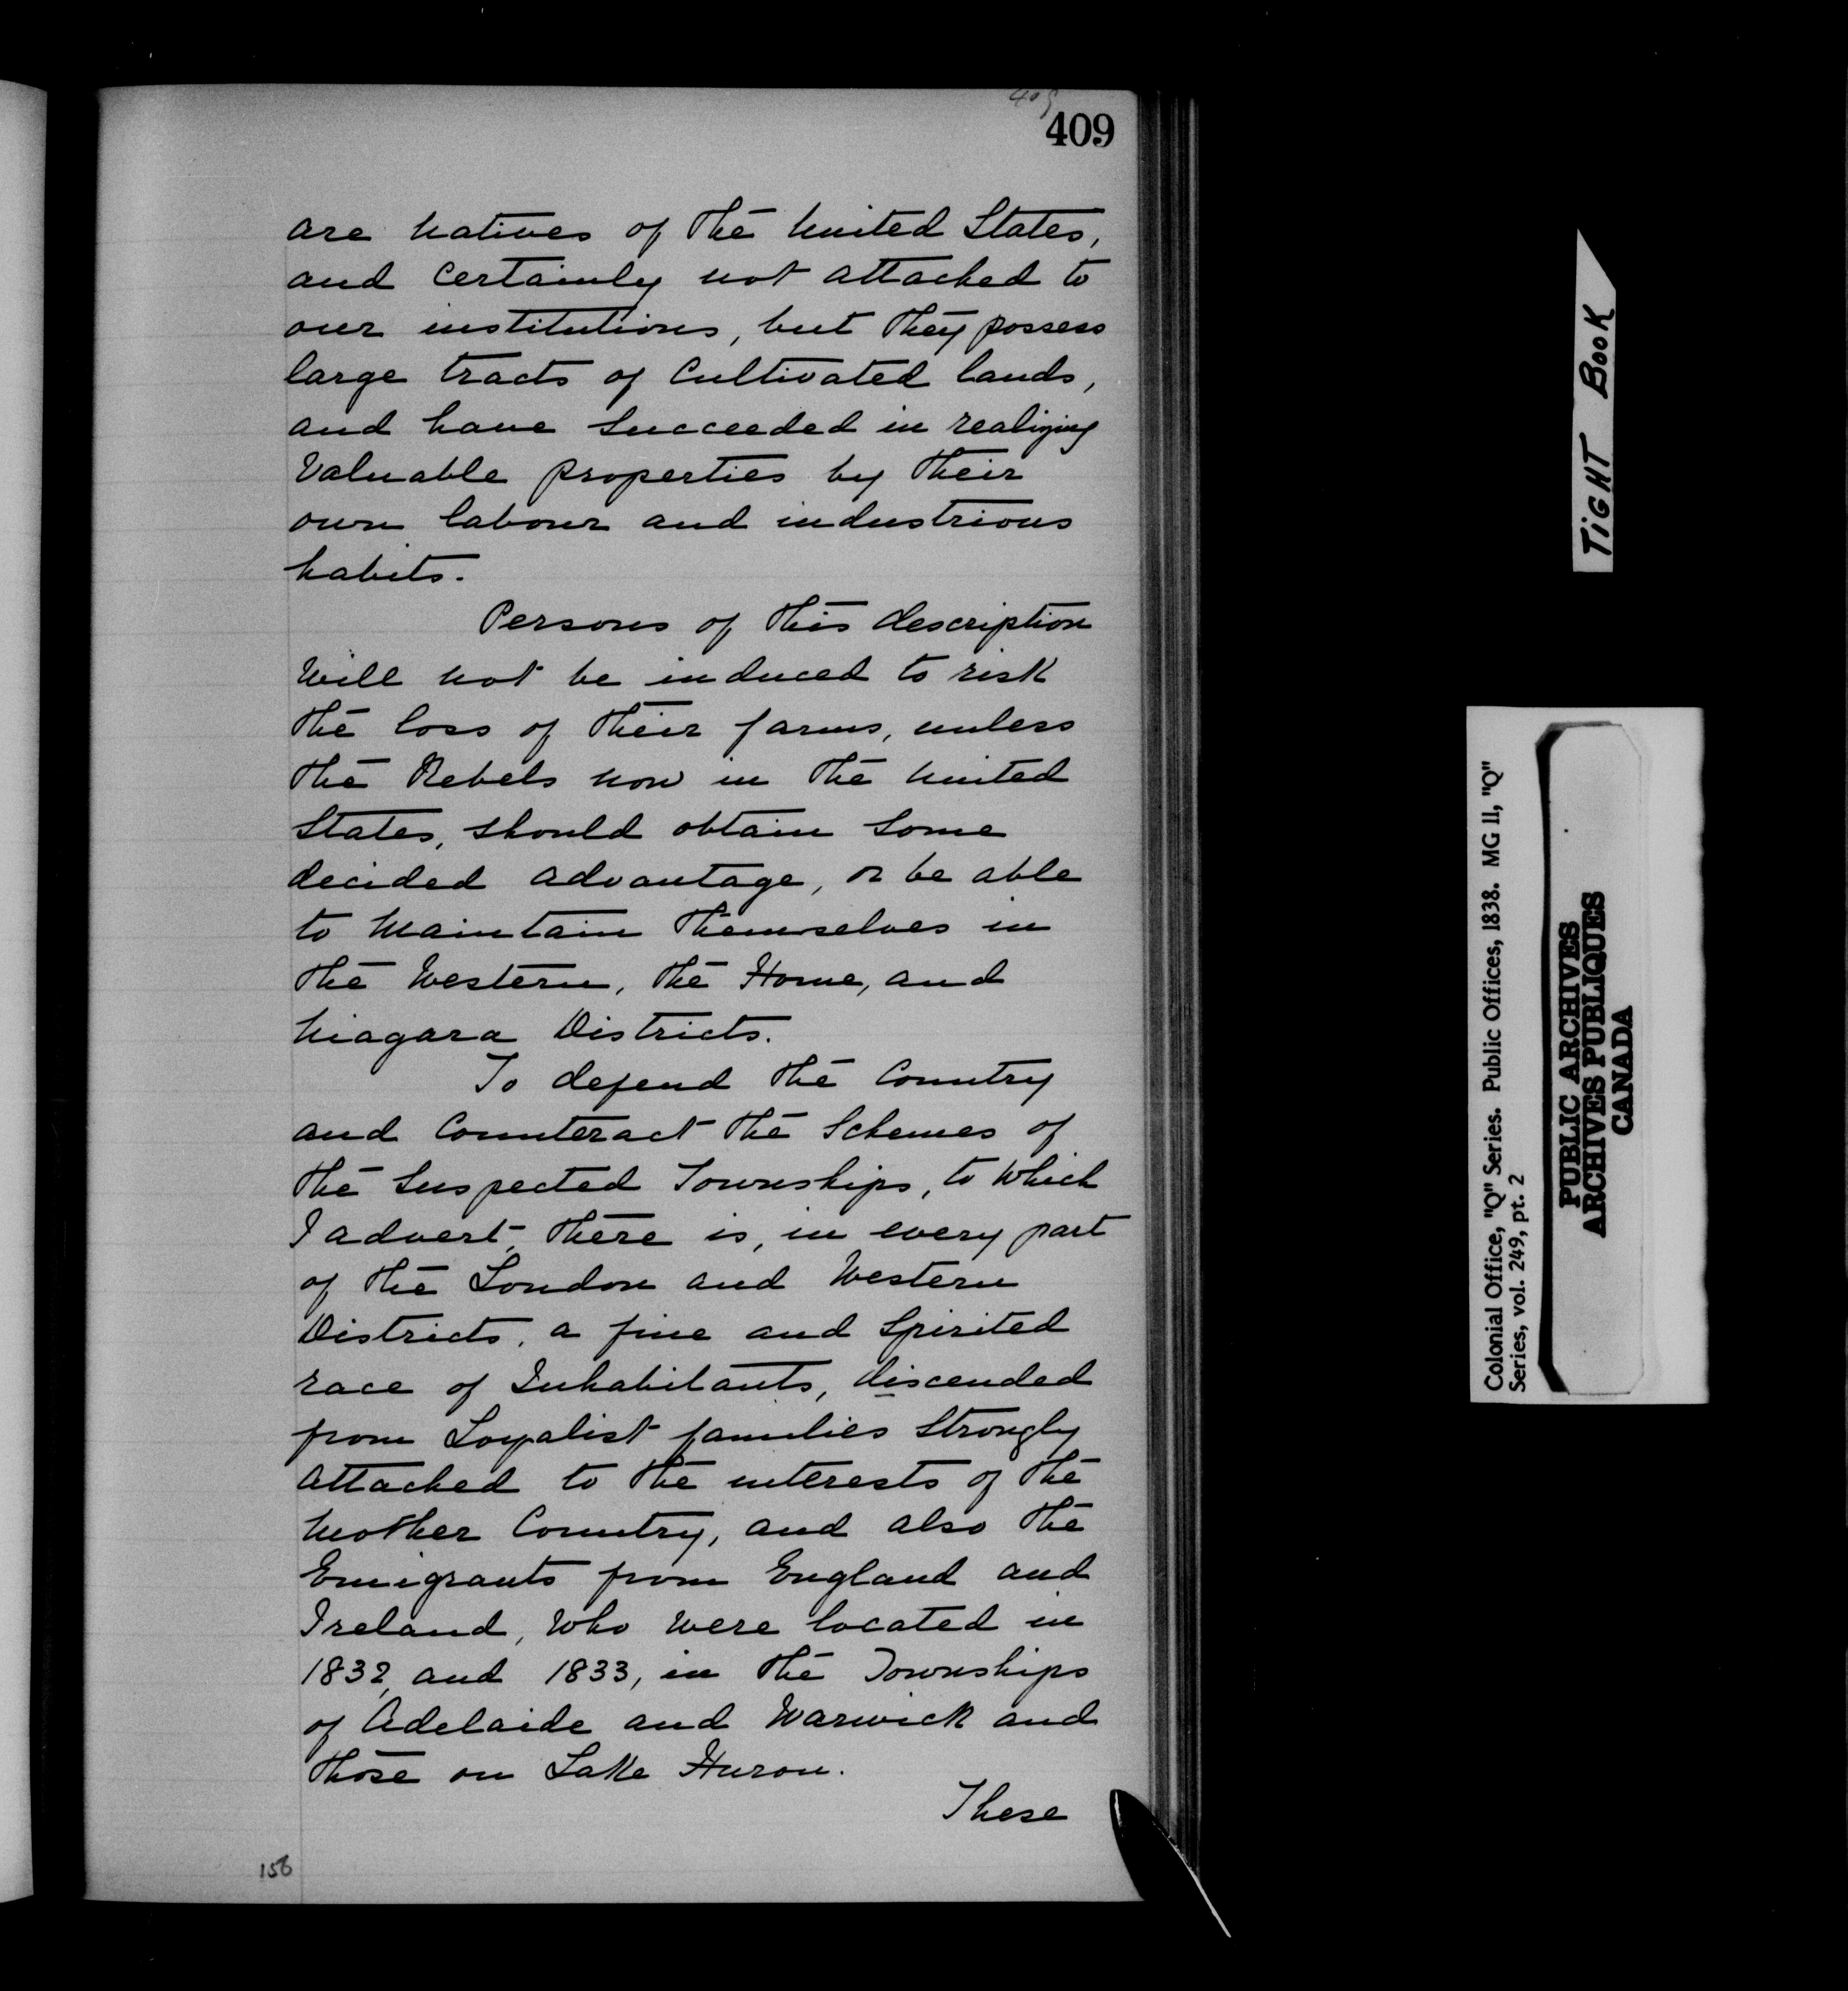 409
409
are Natives of the United States,
and Certainly not attached to
our institutions, but they possess
large tracts of Cultivated lands,
and have Succeeded in realizing
Valuable properties by their
own labour and industrious
habits.
Persons of this description
Will not be induced to risk
the loss of their farms, unless
the Rebels now in the United
States, should obtain Some
decided advantage, or be able
to Maintain themselves in
the Western, the Home, and
Niagara Districts.
To defend the Country
and Counteract the Schemes of
the Suspected Townships, to Which
I advert, there is, in every part
of the London and Western
Districts, a fine and Spirited
race of Inhabitants, discended
from Loyalist families Strongly
attached to the interests of the
Mother Country, and also the
Emigrants from England and
Ireland, Who Were located in
1832, and 1833, in the Townships
of Adelaide and Warwick and
those on Lake Huron.
These
156
TIGHT BOOK
Colonial Office, "Q" Series. Public Offices, 1838. MG 11, "Q"
Series, vol. 249, pt. 2
PUBLIC ARCHIVES
ARCHIVES PUBLIQUES
CANADA